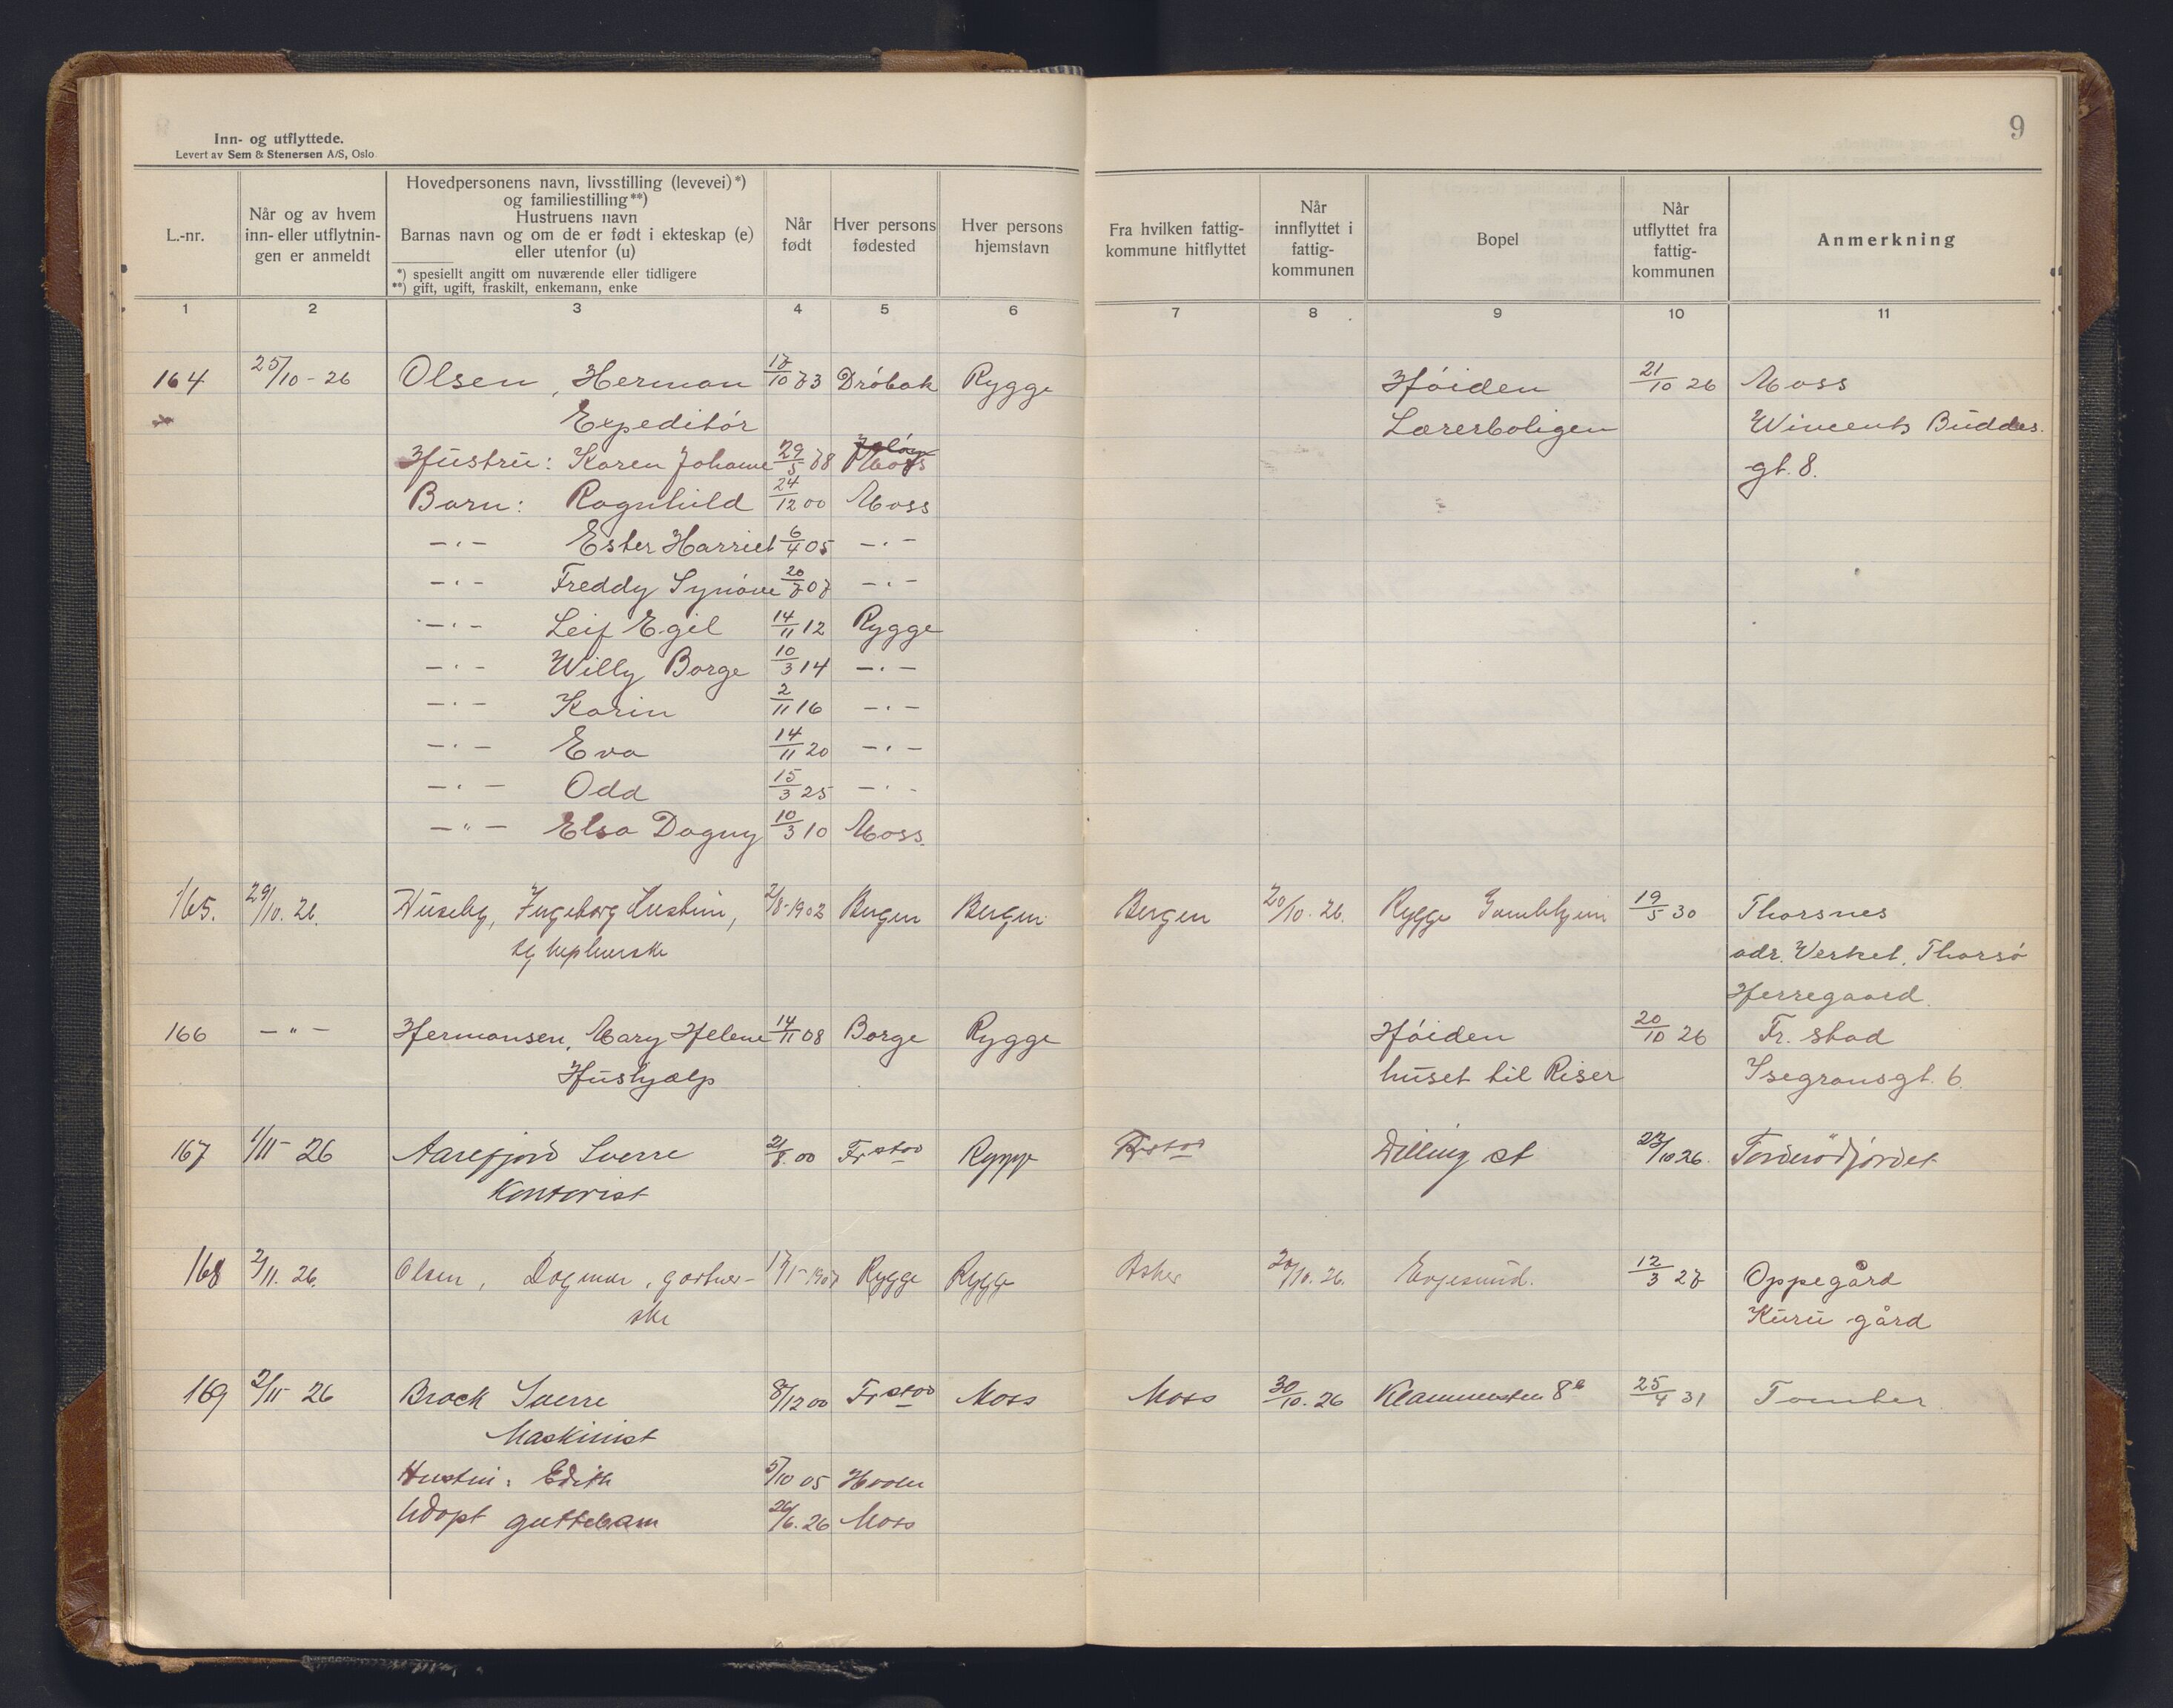 9
Inn- og utflyttede.
Levert av Sem & Stenersen A/S, Oslo
L.-nr.
Når og av hvem
inn- eller utflytnin-
gen er anmeldt
Hovedpersonens navn, livsstilling (levevei)*)
og familiestilling**)
Hustruens navn
Barnas navn og om de er født i ekteskap (e)
eller utenfor (u)
*) spesiellt angitt om nuværende eller tidligere
**) gift, ugift, fraskilt, enkemann, enke
Når
født
Hver persons
fødested
Hver persons
hjemstavn
Fra hvilken fattig-
kommune hitflyttet
Når
innflyttet i
fattig-
kommunen
Bopel
Når
utflyttet fra
fattig-
kommunen
Anmerkning
1 2 3 4 5 6 7 8 9 10 11
164 25/10-26 Olsen, Herman 17/10 73 Dröbak Rygge Höiden 21/10 26 Moss
Expeditör Lærerboligen Wincents Buddes.
Hustru: Karen Johanne 29/5 78 Moss gt. 8.
Barn: Ragnhild 24/12 00 Moss
-"- Ester Harriet 6/4 05 -"-
-"- Freddy Synöve 20/7 07 -"-
-"- Leif Egil 14/11 12 Rygge
-"- Willy Borge 10/3 14 -"-
-"- Karin 2/11 16 -"-
-"- Eva 14/11 20 -"-
-"- Odd 15/3 25 -"-
-"- Elsa Dagny 10/3 10 Moss.
165. 29/10. 26. Huseby, Ingeborg 2/8-1902 Bergen Bergen Bergen 20/10. 26. Rygge Gamlehjem 19/5 30 Thorsnes
adr. Verket, Thorsö
Herregaard.
166 -"- Hermansen, Mary Helene 14/11 08 Borge Rygge Höiden 20/10 26 Fr. stad
Hushjælp huset til Riser Isegransgt. 6.
167 1/11 26 Aarefjord Sverre 21/8. 00 Frstad Rygge Frstad Dilling st 23/10 26. Tordenödjordet
Kontorist
168 2/11. 26. Olsen, Dagmar, gartner- 17/5-1907 Rygge Rygge Asker 20/10. 26. Evjesund. 12/3 27 Oppegård
ske Kuru gård
169 2/11 26 Brock Sverre 8/12 00 Frstad Moss Moss 30/10. 26 Klommesten 8b 25/4 31 Tomter
Maskinist
Hustru: Edith 5/10 05 Hvaler
Adopt guttebarn 26/6. 26 Moss